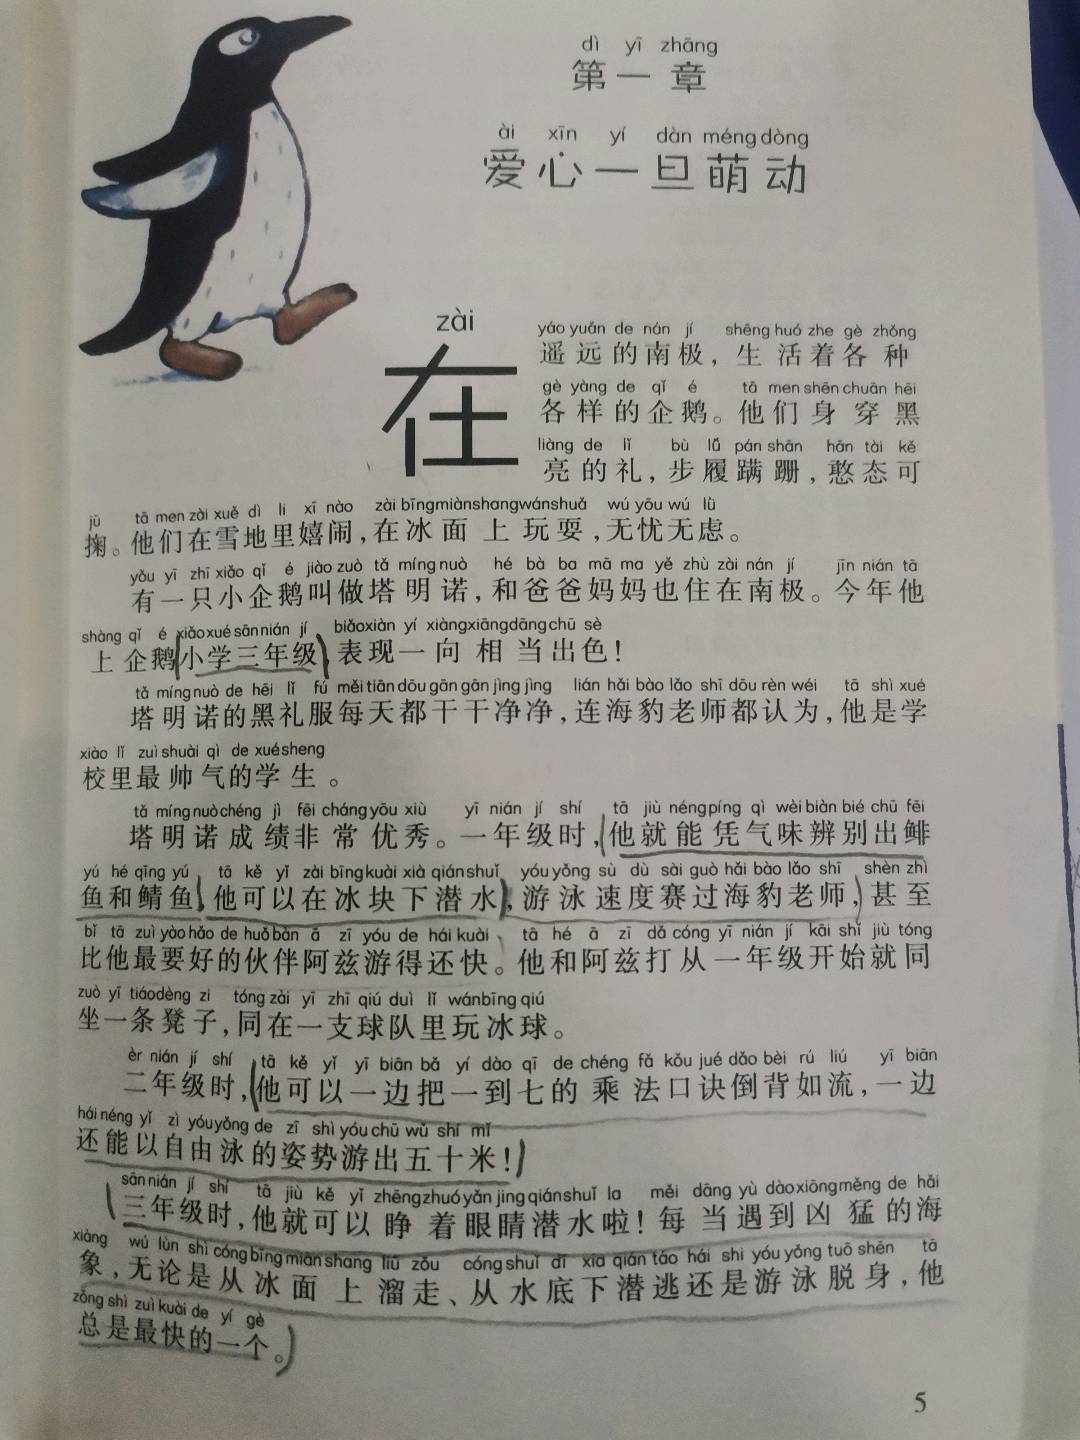 dì yī zhāng
第一章
ài xīn yí dàn méng dòng
爱心一旦萌动
zài
在
yáo yuǎn de nán jí shēng huó zhe gè zhǒng
遥远的南极，生活着各种
gè yàng de qǐ é tā men shēn chuān hēi
各样的企鹅。他们身穿黑
liàng de lǐ bù lǚ pán shān hān tài kě
亮的礼，步履蹒跚，憨态可
jū tā men zài xuě dì li xī nào zài bīng miàn shang wán shuǎ wú yōu wú lǜ
掬。他们在雪地里嬉闹，在冰面上玩耍，无忧无虑。
yǒu yī zhī xiǎo qǐ é jiào zuò tǎ míng nuò hé bà ba mā ma yě zhù zài nán jí jīn nián tā
有一只小企鹅叫做塔明诺，和爸爸妈妈也住在南极。今年他
shàng qǐ é xiǎo xué sān nián jí biǎo xiàn yí xiàng xiāng dāng chū sè
上企鹅小学三年级，表现一向相当出色！
tǎ míng nuò de hēi lǐ fú měi tiān dōu gān gān jìng jìng lián hǎi bào lǎo shī dōu rèn wéi tā shì xué
塔明诺的黑礼服每天都干干净净，连海豹老师都认为，他是学
xiào lǐ zuì shuài qì de xué sheng
校里最帅气的学生。
tǎ míng nuò chéng jì fēi cháng yōu xiù yī nián jí shí tā jiù néng píng qì wèi biàn bié chū fēi
塔明诺成绩非常优秀。一年级时，他就能凭气味辨别出鲱
yú hé qīng yú tā kě yǐ zài bīng kuài xià qián shuǐ yóu yǒng sù dù sài guò hǎi bào lǎo shī shèn zhì
鱼和鲭鱼，他可以在冰块下潜水，游泳速度赛过海豹老师，甚至
bǐ tā zuì yào hǎo de huǒ bàn ā zī yóu de hái kuài tā hé ā zī dǎ cóng yī nián jí kāi shǐ jiù tóng
比他最要好的伙伴阿兹游得还快。他和阿兹打从一年级开始就同
zuò yī tiáo dèng zi tóng zài yī zhī qiú duì lǐ wán bīng qiú
坐一条凳子，同在一支球队里玩冰球。
èr nián jí shí tā kě yǐ yī biān bǎ yí dào qī de chéng fǎ kǒu jué dǎo bèi rú liú yī biān
二年级时，他可以一边把一到七的乘法口诀倒背如流，一边
hái néng yǐ zì yóu yǒng de zī shì yóu chū wǔ shí mǐ
还能以自由泳的姿势游出五十米！
sān nián jí shí tā jiù kě yǐ zhēng zhuó yǎn jing qián shuǐ la měi dāng yù dào xiōng měng de hǎi
三年级时，他就可以睁着眼睛潜水啦！每当遇到凶猛的海
xiàng wú lùn shì cóng bīng miàn shang liū zǒu cóng shuǐ dǐ xià qián táo hái shi yóu yǒng tuō shēn tā
象，无论是从冰面上溜走、从水底下潜逃还是游泳脱身，他
zǒng shì zuì kuài de yí gè
总是最快的一个。
5